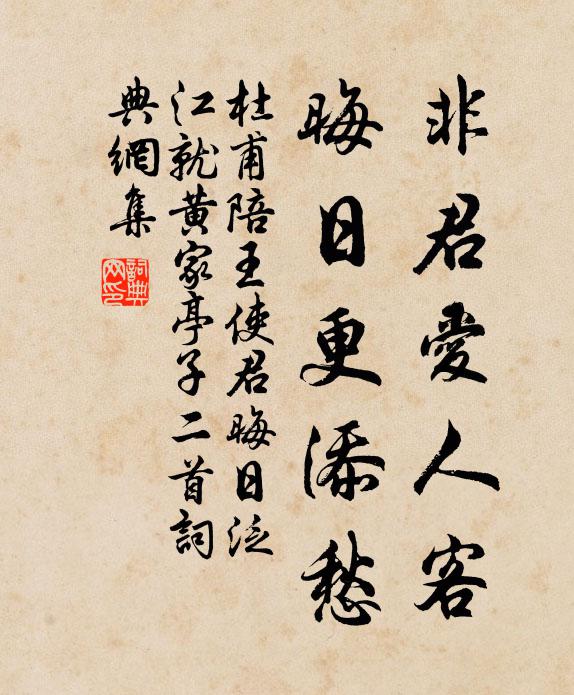 非君愛人客
晦日更添愁
杜甫陪王使君晦日泛
江就黃家亭子二首詞
典網集
詞典
网印